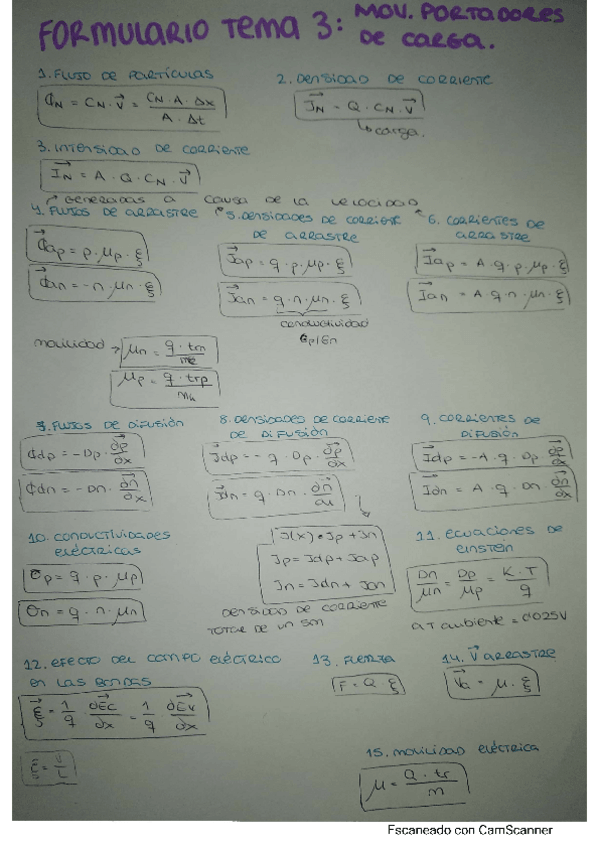 FORMULARIO TEMA 3: MOV. PORTADORES
DE CARGA.
1. FLUJO DE PARTÍCULAS
ȼN = CN · v⃗ = CN · A · Δx / A · Δt
2. DENSIDAD DE CORRIENTE
J⃗N = Q · CN · v⃗
↳ carga.
3. INTENSIDAD DE CORRIENTE
I⃗N = A · Q · CN · v⃗
↱ GENERADAS A CAUSA DE LA VELOCIDAD
4. FLUJOS DE ARRASTRE
ȼ⃗ap = p · μp · ξ
ȼ⃗an = -n · μn · ξ
5. DENSIDADES DE CORRIENTE
DE ARRASTRE
J⃗ap = q · p · μp · ξ
J⃗an = q · n · μn · ξ
conductividad
6. CORRIENTES DE
ARRASTRE
I⃗ap = A · q · p · μp · ξ
I⃗an = A · q · n · μn · ξ
movilidad → μn = q · trn /
μp = q · trp /
7. FLUJOS DE DIFUSIÓN
ȼdp = -Dp · ∂p⃗/∂x
ȼdn = -Dn · ∂n⃗/∂x
8. DENSIDADES DE CORRIENTE
DE DIFUSIÓN
J⃗dp = -q · Dp · ∂p⃗/∂x
J⃗dn = q · Dn · ∂n⃗/∂x
J(x) = Jp + Jn
Jp = Jdp + Jap
Jn = Jdn + Jan
DENSIDAD DE CORRIENTE
TOTAL DE UN SM
9. CORRIENTES DE
DIFUSIÓN
I⃗dp = -A · q · Dp ∂p⃗/∂x
I⃗dn = A · q · Dn ∂n⃗/∂x
10. CONDUCTIVIDADES
ELÉCTRICAS
σp = q · p · μp
σn = q · n · μn
11. ECUACIONES DE
EINSTEIN
Dn/μn = Dp/μp = K · T/q
a T ambiente = 0'025V
12. EFECTO DEL CAMPO ELÉCTRICO
EN LAS BANDAS
ξ⃗ = 1/q · ∂EC⃗/∂x = 1/q · ∂EV⃗/∂x
ξ = V/L
13. FUERZA
F = Q · ξ
14. V⃗ ARRASTRE
V⃗a = μ · ξ
15. MOVILIDAD ELÉCTRICA
μ = Q · tr / m
Escaneado con CamScanner